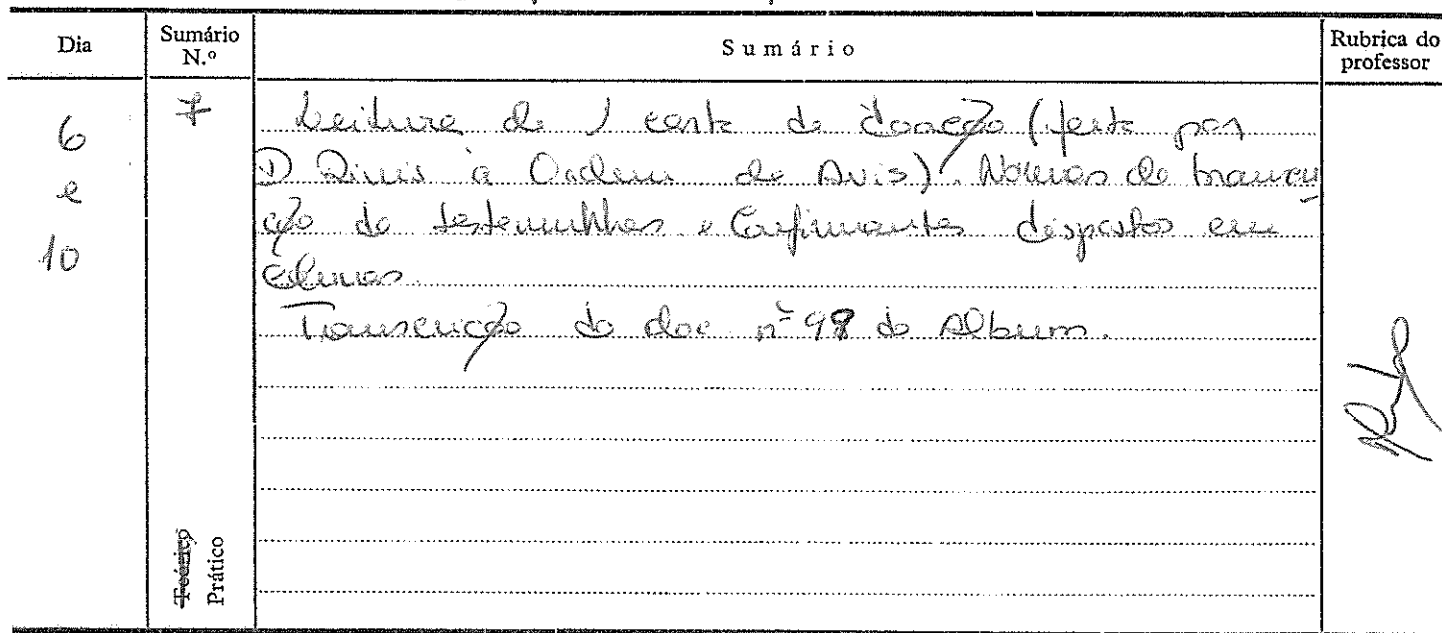 Dia
Sumário N.º
Sumário
Rubrica do professor
6 e 10
7
Leitura de 1 carta de doação (feita por
D Dinis à Ordem de Avis). Normas de transcri
ção de testemunhas e Confirmantes dispostos em
colunas.
Transcrição do doc nº 98 do Album.
Teórico
Prático